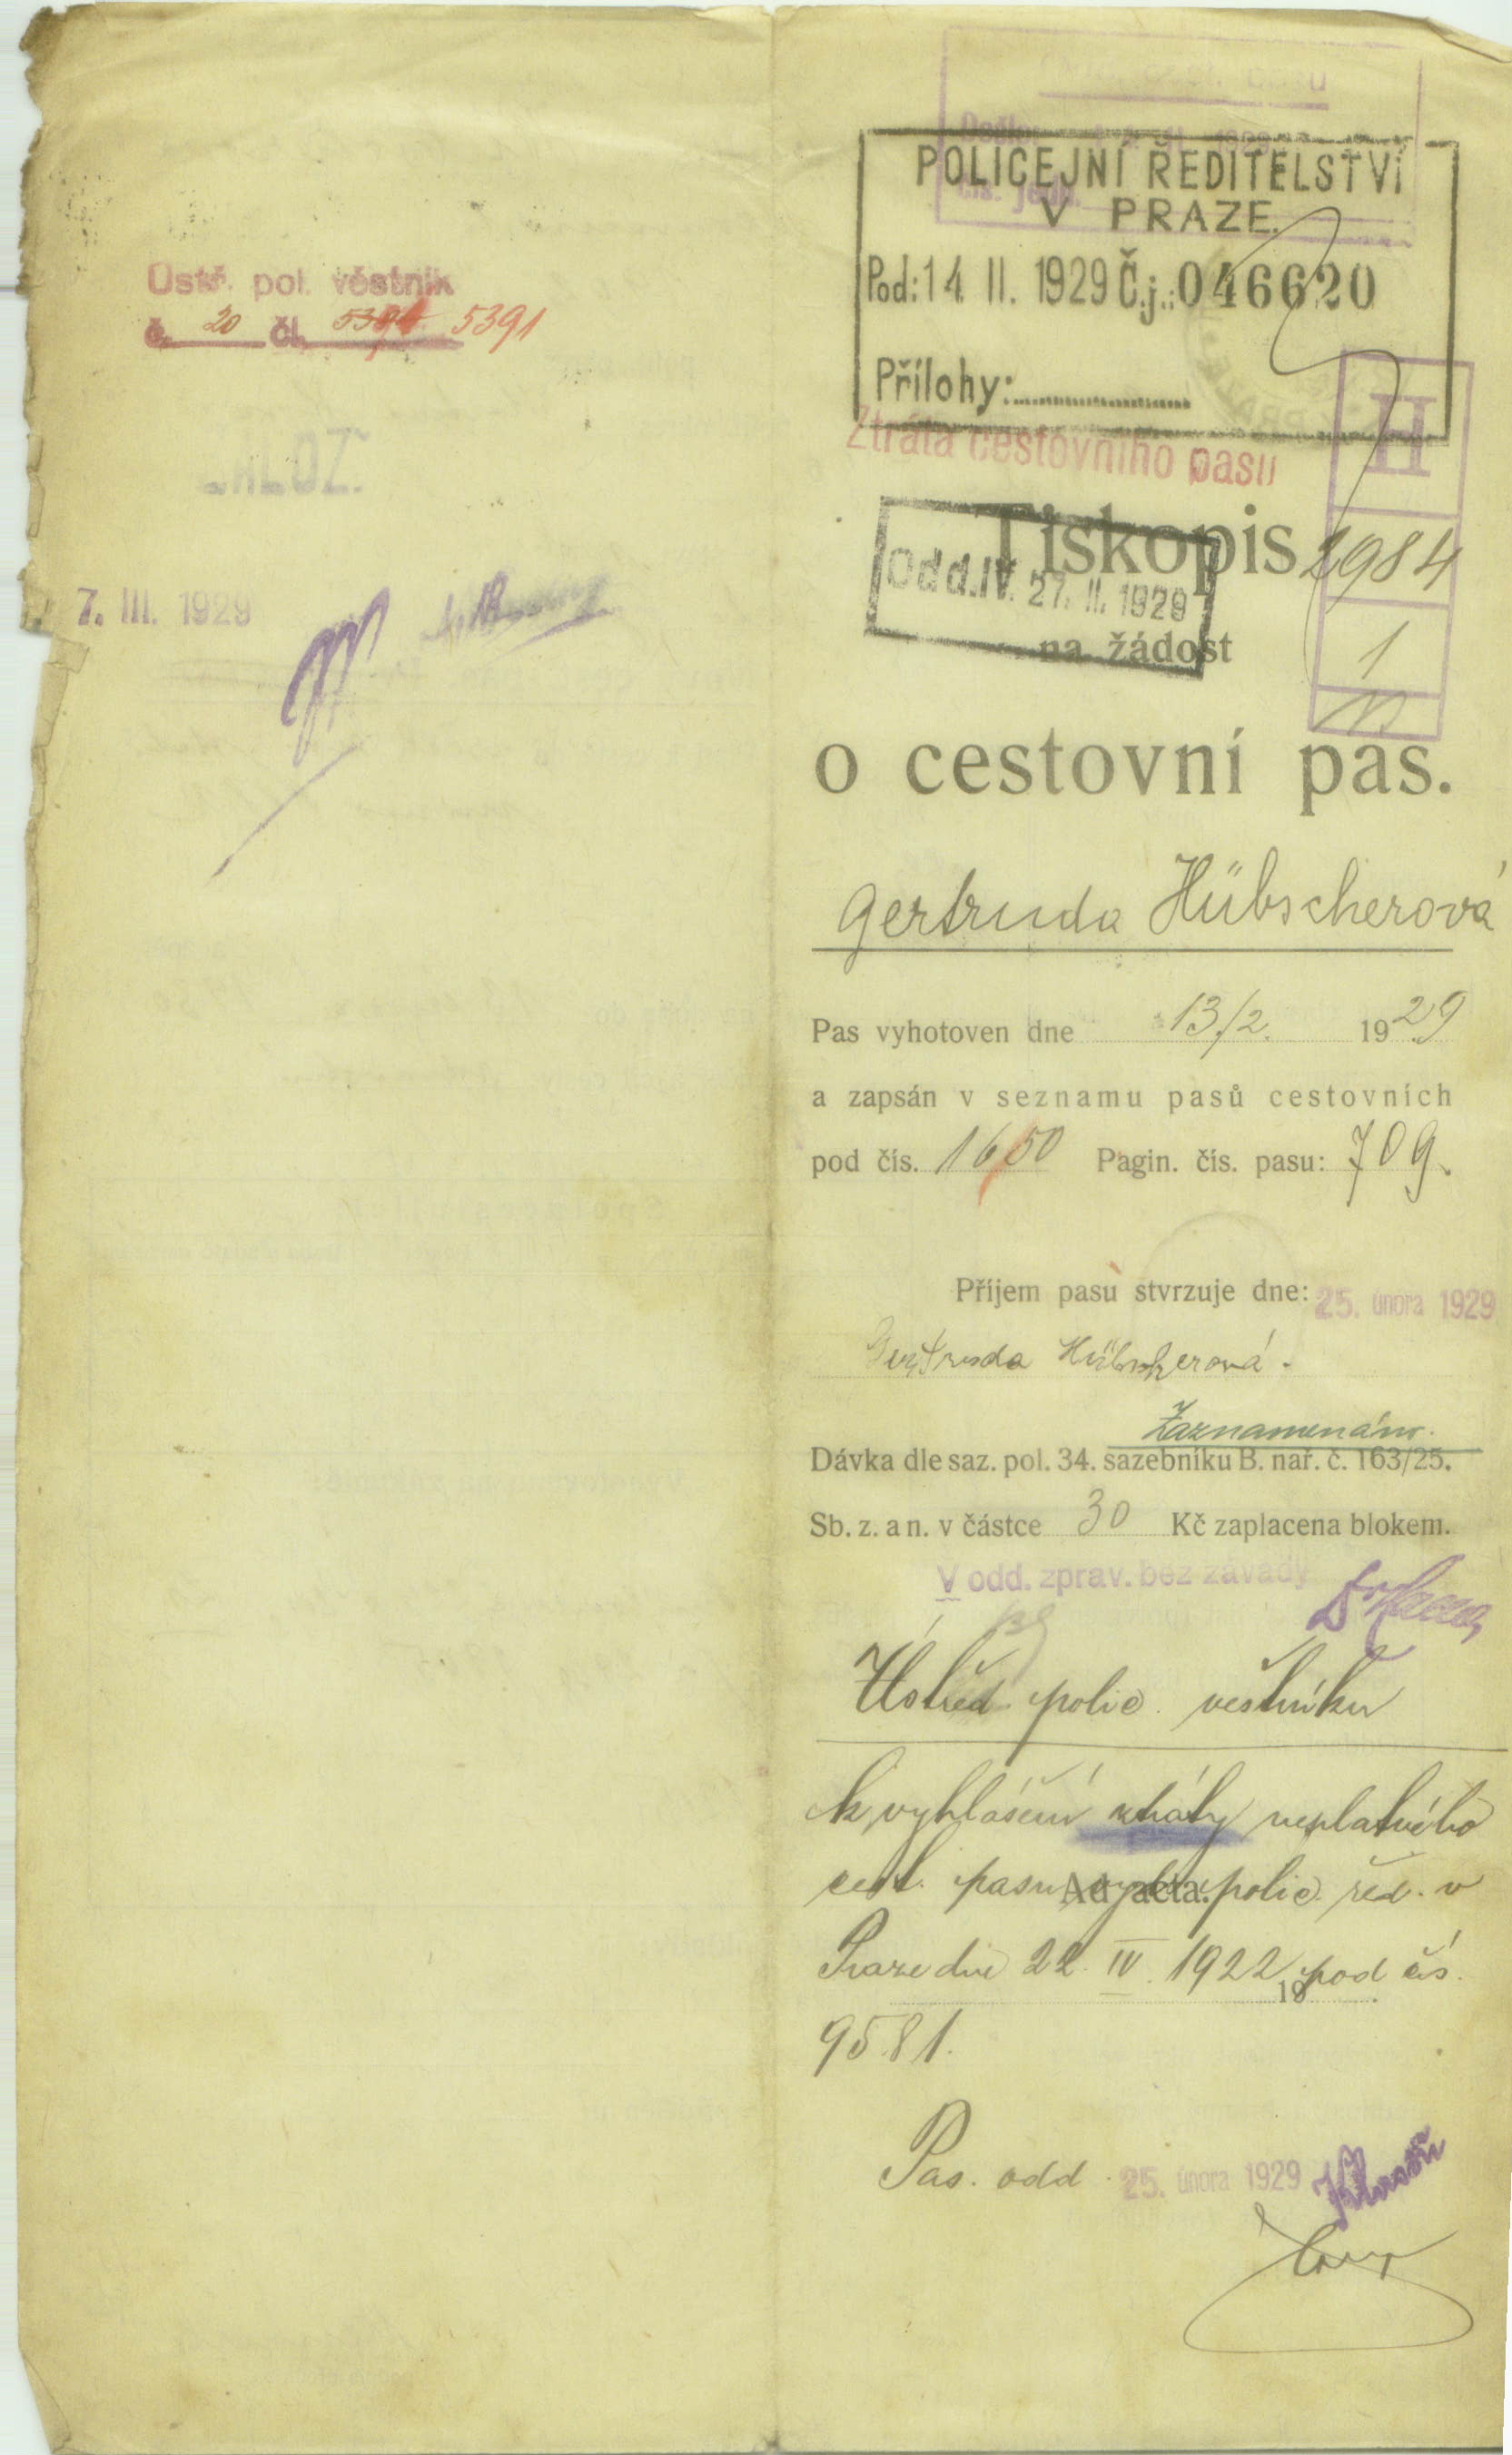 Ústř. pol. věstník
č. 20 čl. 5394 5391
7. III. 1929
POLICEJNÍ ŘEDITELSTVÍ
V PRAZE.
Pod: 14 II. 1929 Č.j.: 046620
Přílohy:
Ztráta cestovního pasu
H
Tiskopis
2984
Odd. IV. 27. II. 1929
na žádost
1
o cestovní pas.
Gertruda Hübscherová
Pas vyhotoven dne 13/2. 1929
a zapsán v seznamu pasů cestovních
pod čís. 1650 Pagin. čís. pasu: 709.
Příjem pasu stvrzuje dne: 25. února 1929
Gertruda Hübscherová.
Zaznamenáno.
Dávka dle saz. pol. 34. sazebníku B. nař. č. 163/25.
Sb. z. a n. v částce 30 Kč zaplacena blokem.
V odd. zprav. bez závady
Ústřed. polic. věstníku
k vyhlášení ztráty neplatného
cest. pasu vyd. polic. řed. v
Ad acta.
Praze dne 22. IV. 1922 pod čís.
19
9581.
Pas. odd. 25. února 1929